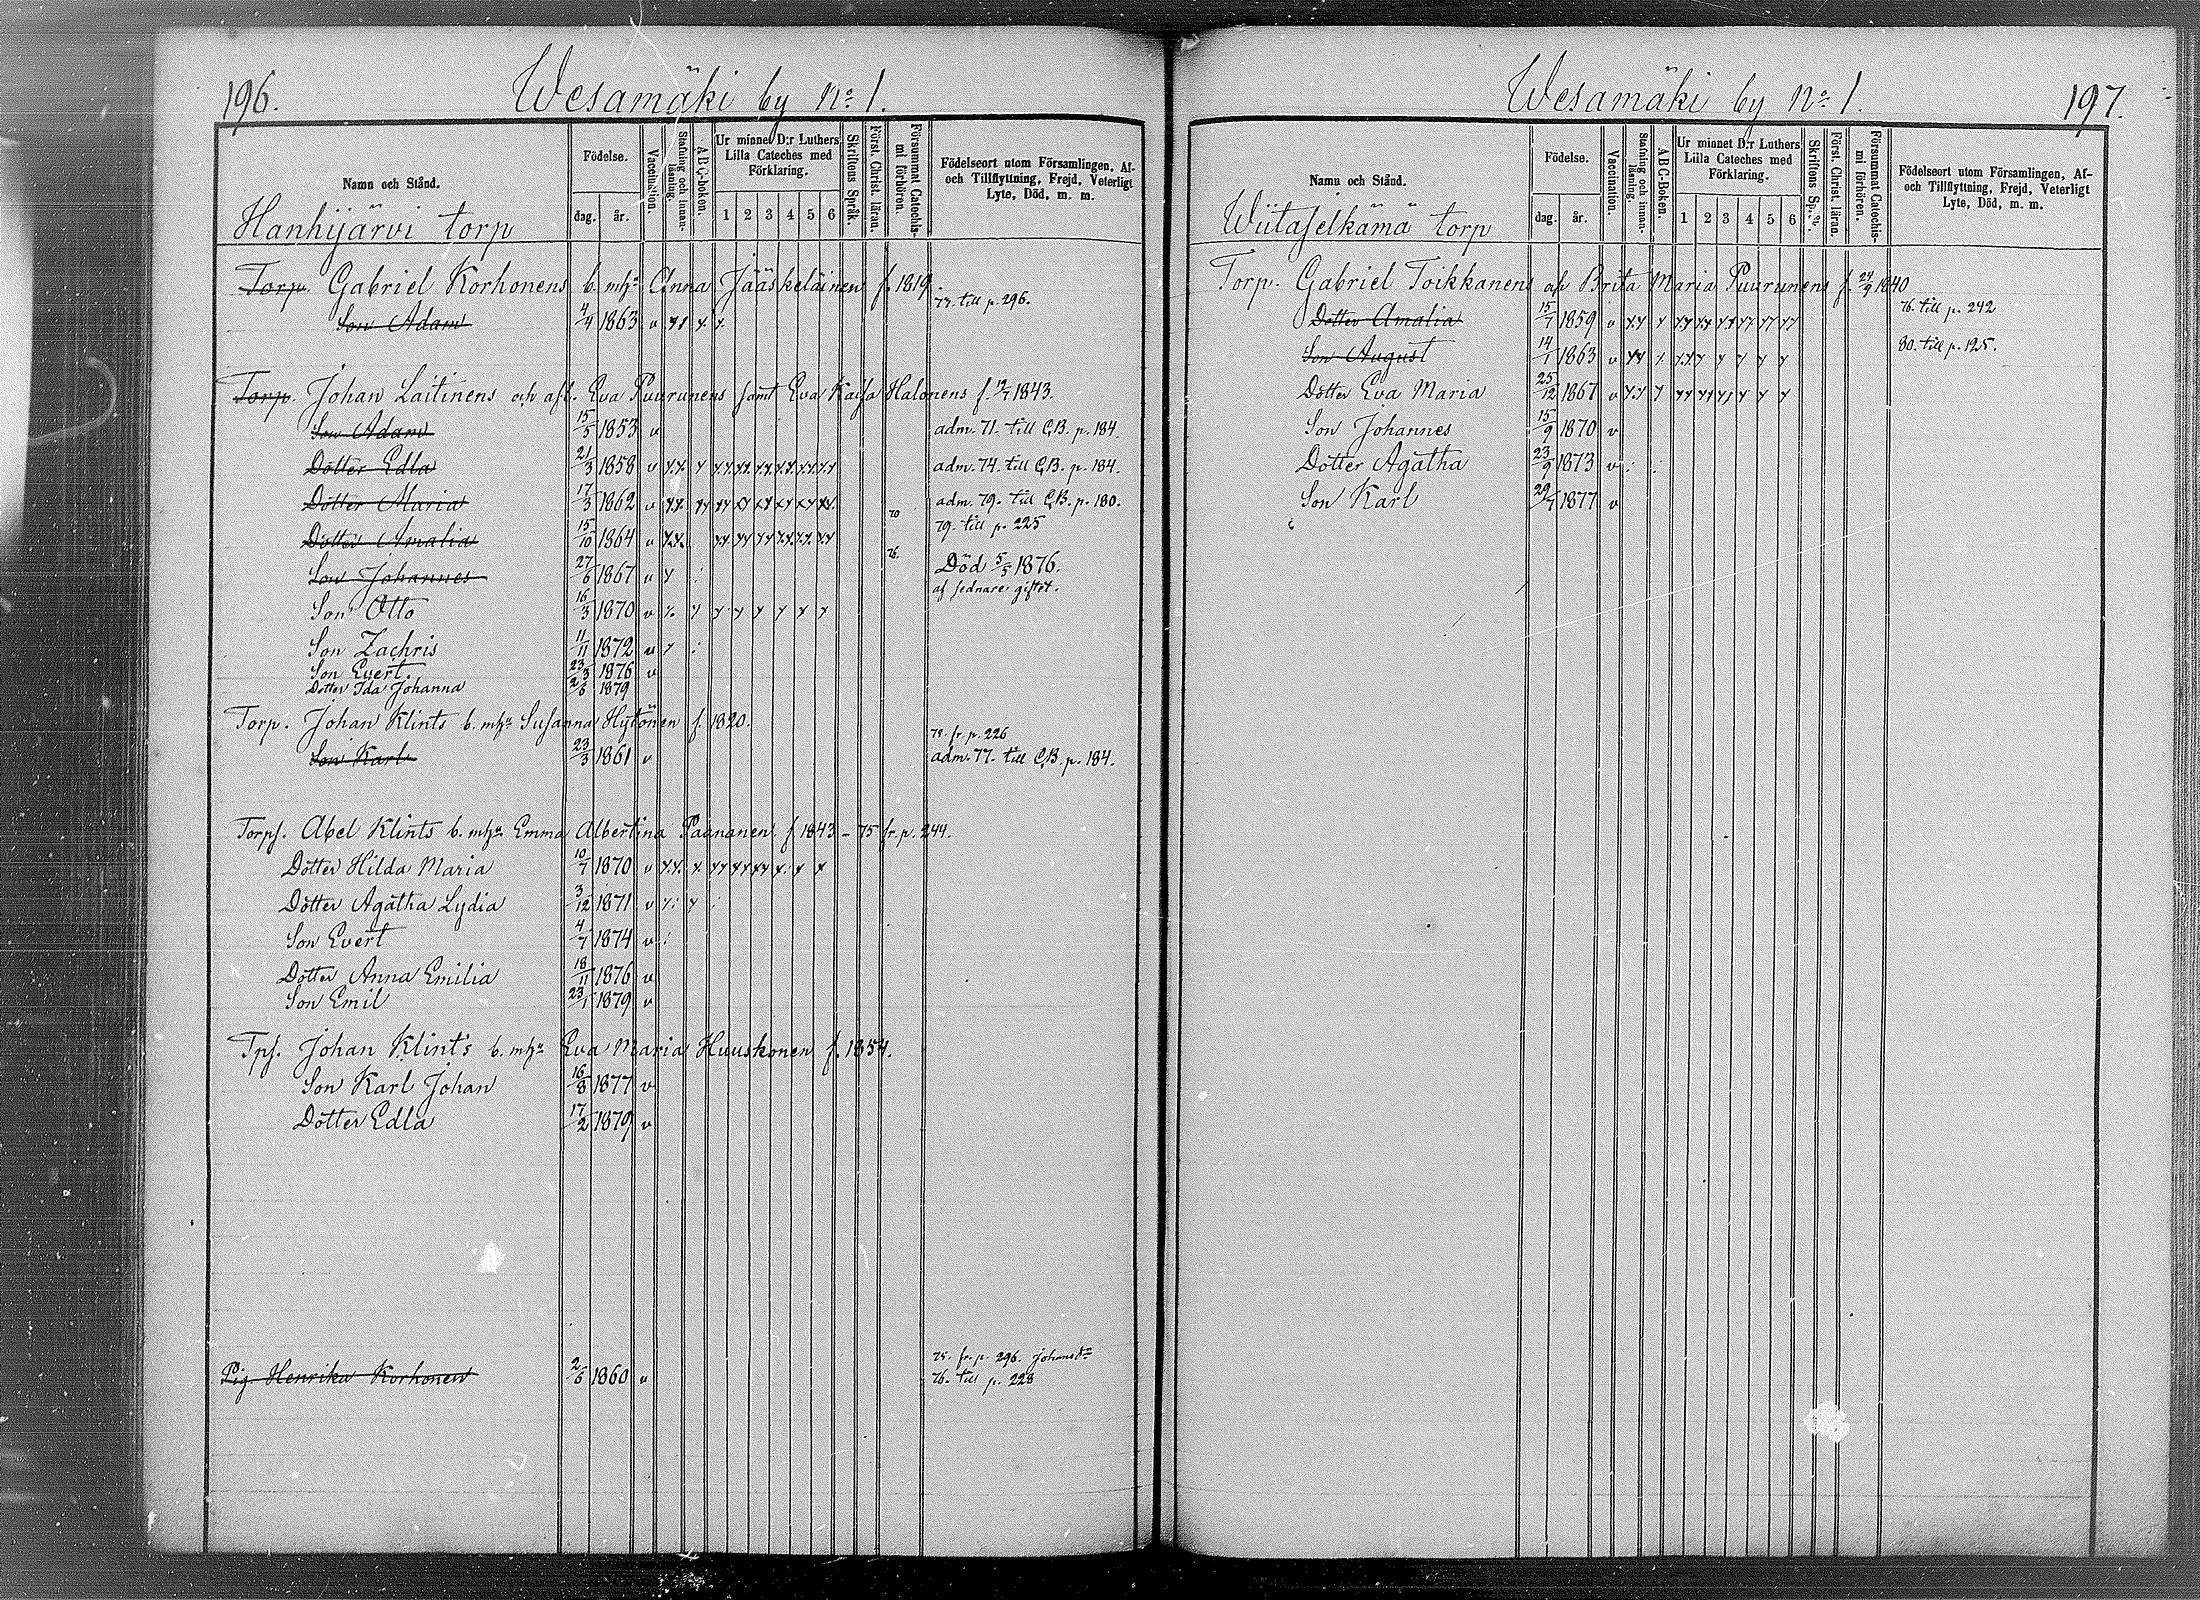 196.
Wesamäki by No 1.
Namn och Stånd.
Födelse.
dag.
år.
Vaccination.
Stafning och innan-läsning.
A B C-boken.
Ur minnet D:r Luthers Lilla Cateches med Förklaring.
1 2 3 4 5 6
Skriftens Språk.
Först. Christ. läran.
Försummat Catechis-mi förhören.
Födelseort utom Församlingen, Af- och Tillflyttning, Frejd, Veterligt Lyte, Död, m. m.
Hanhijärvi torp
Torp. Gabriel Korhonens b. mhu Anna Jääskeläinen f. 1819.
Son Adam 4/4 1863 v 77. till p. 296.
Torp. Johan Laitinens och afl. Eva Puurunens samt Eva Kaisa Halonens f. 12/7 1843.
Son Adam 15/5 1853 v adm. 71. till C.B. p. 184.
Dotter Edla 21/3 1858 v adm. 74. till C.B. p. 184.
Dotter Maria 17/3 1862 v 70 adm. 79. till C.B. p. 180.
Dotter Amalia 15/10 1864 v 79. till p. 225
Son Johannes 27/6 1867 v 76. Död 5/5 1876.
af sednare giftet.
Son Otto 16/3 1870 v
Son Zachris 11/11 1872 v
Son Evert. 23/3 1876 v
Dotter Ida Johanna 2/6 1879
Torp. Johan Klints b. mhu Susanna Hytönen f. 1820.
78. fr. p. 226
Son Karl 23/3 1861 v adm. 77. till C.B. p. 184.
Torps. Abel Klints b. mhu Emma Albertina Paananen f. 1843 - 75 fr. p. 244.
Dotter Hilda Maria 10/7 1870 v
Dotter Agatha Lydia 3/12 1871 v
Son Evert 4/7 1874 v
Dotter Anna Emilia 18/11 1876 v
Son Emil 23/1 1879 v
Tps. Johan Klint's b. mhu Eva Maria Huuskonen f. 1854.
Son Karl Johan 16/8 1877 v
Dotter Edla 17/2 1879 v
75. fr. p. 296. Johansdr
Pig. Henrika Korhonen 2/6 1860 v 76. till p. 228
Wesamäki by No 1.
197.
Namn och Stånd.
Födelse.
dag.
år.
Vaccination.
Stafning och innan-läsning.
A B C-Boken.
Ur minnet D:r Luthers Lilla Cateches med Förklaring.
1 2 3 4 5 6
Först. Christ. läran.
Försummat Catechis-mi förhören.
Födelseort utom Församlingen, Af- och Tillflyttning, Frejd, Veterligt Lyte, Död, m. m.
Wiitaselkämä torp
Torp. Gabriel Toikkanens af Brita Maria Puurunens f. 24/9 1840
Dotter Amalia 15/7 1859 v 76. till p. 242
Son August 14/1 1863 v 80. till p. 125.
Dotter Eva Maria 25/12 1867 v
Son Johannes 15/9 1870 v
Dotter Agatha 23/9 1873 v
Son Karl 29/7 1877 v